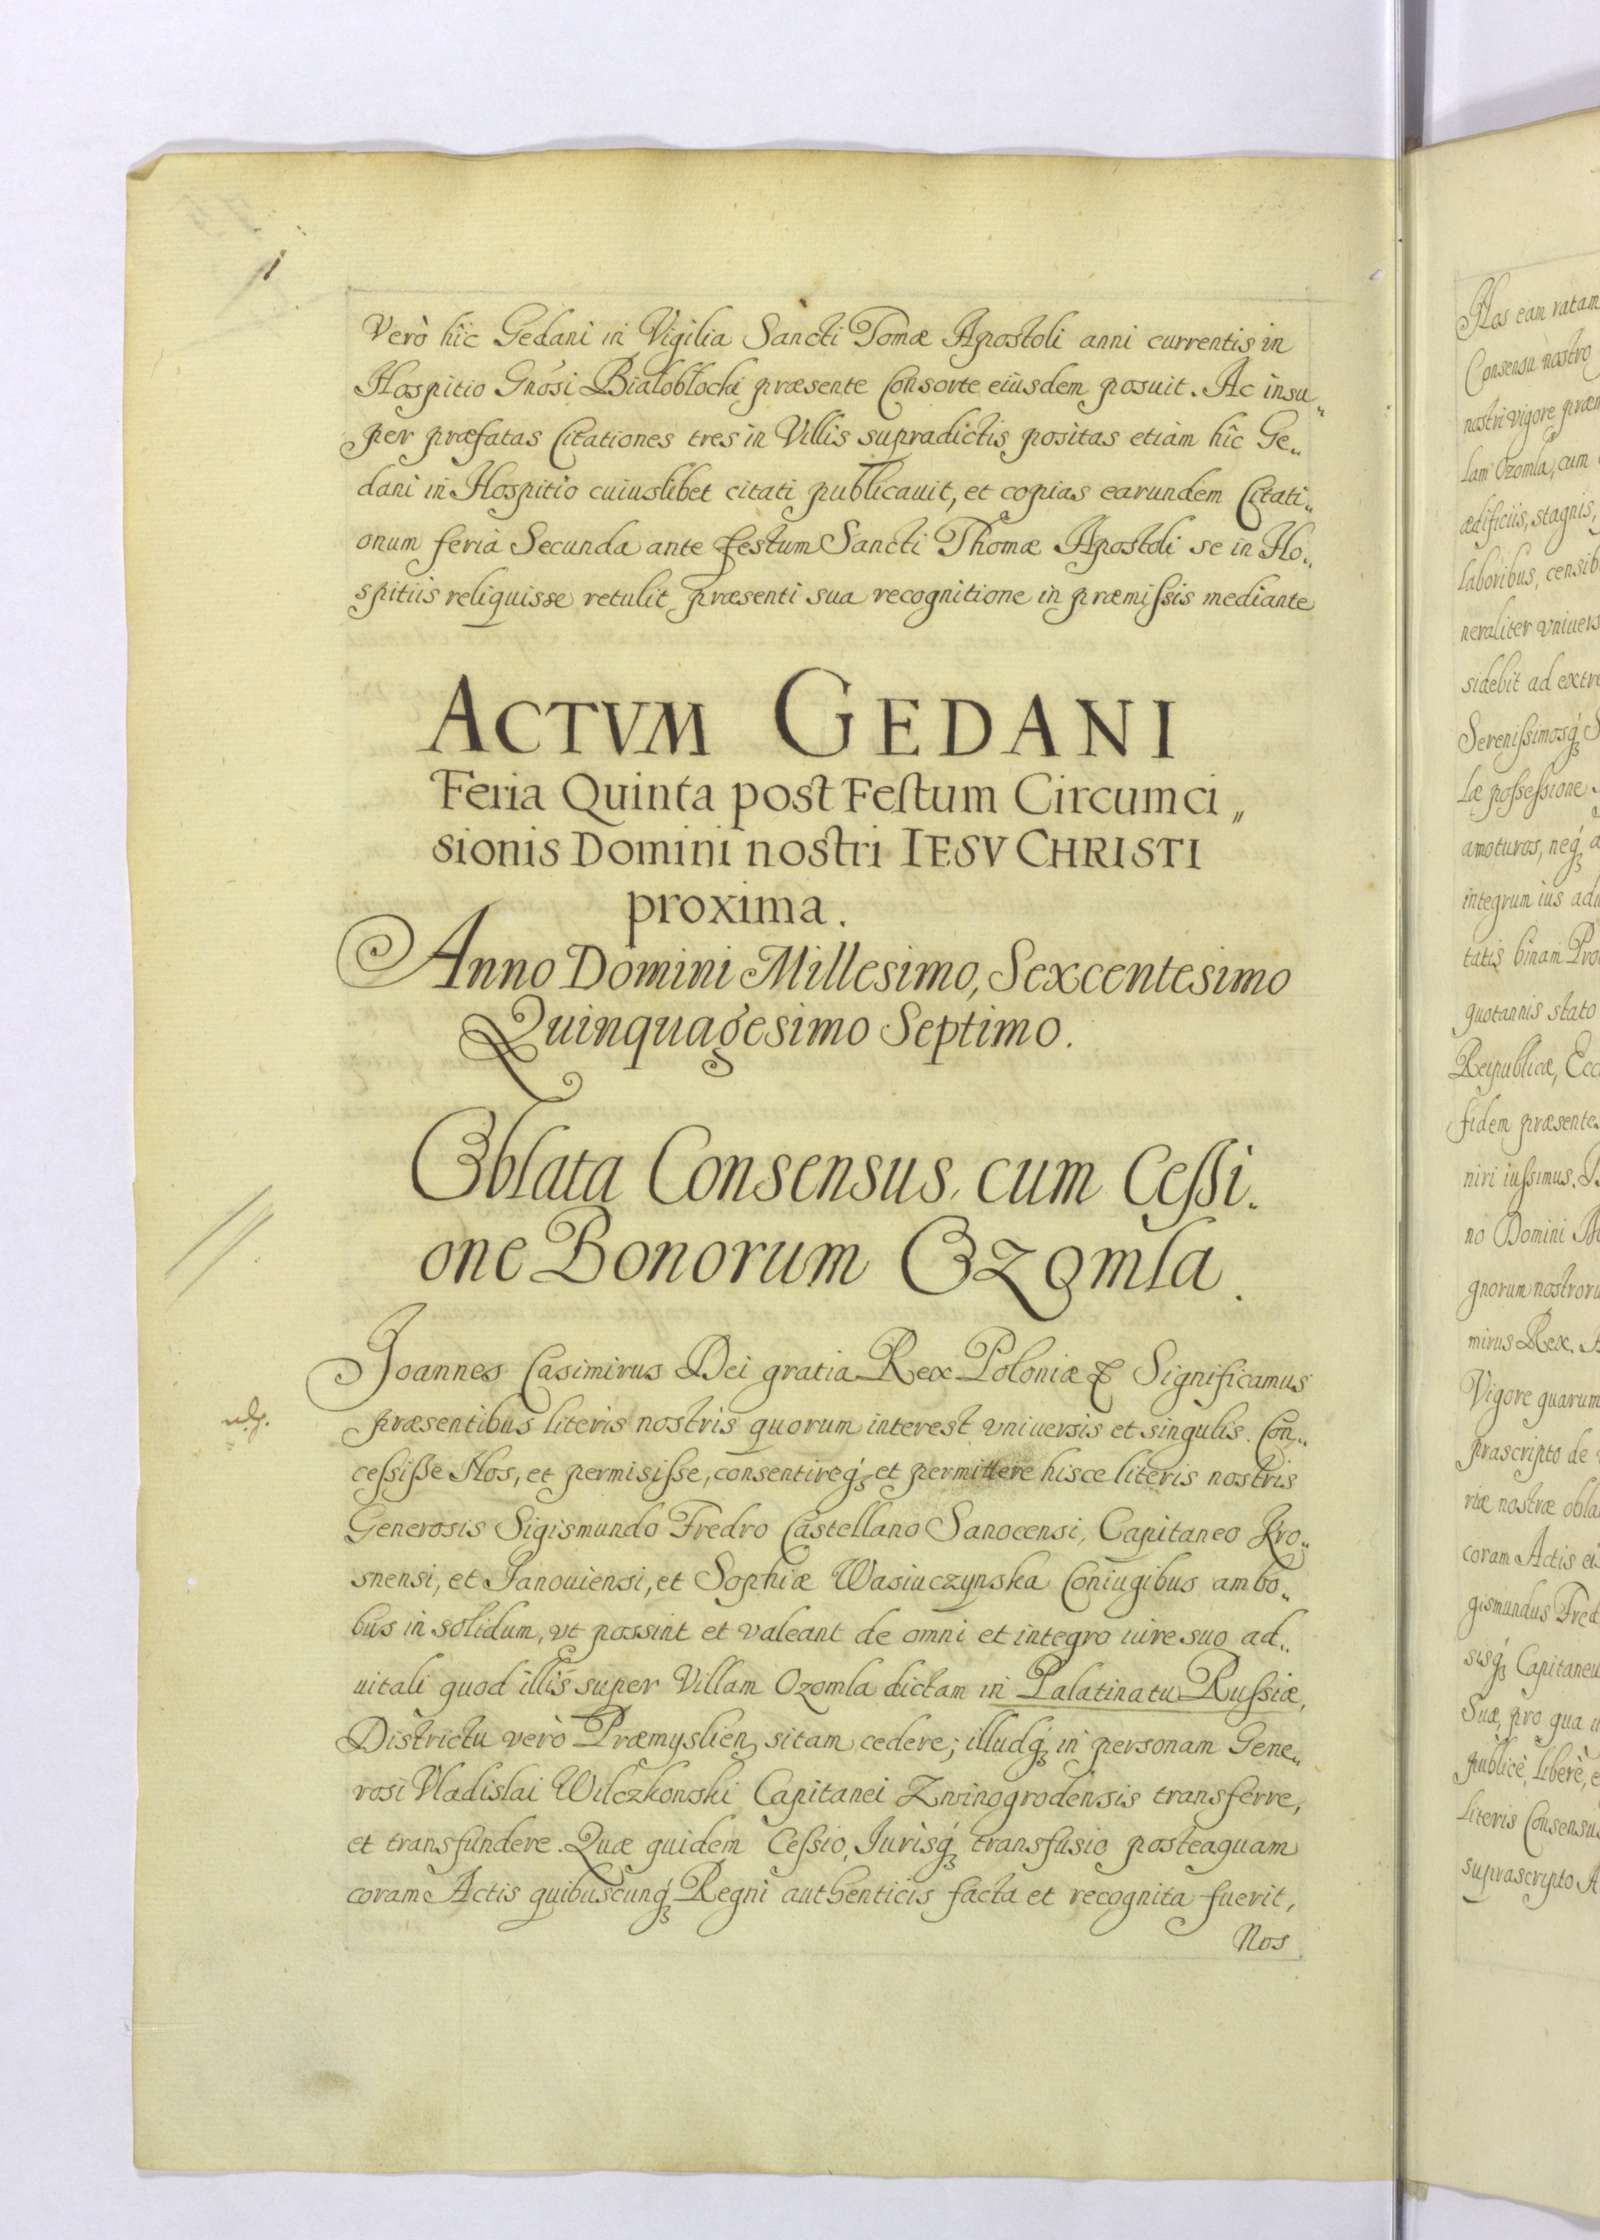 Verò hîc Gedani in Vigilia Sancti Tomæ Apostoli anni currentis in
Hospitio Gnosi Białobłocki præsente Consorte eiusdem posuit. Ac insu„
per præfatas Citationes tres in Villis supradictis positas etiàm hîc Ge„
dani in Hospitio cuiuslibet citati publicauit, et copias earundem Citati„
onum feria Secunda ante festum Sancti Thomæ Apostoli se in Ho„
spitiis reliquisse retulit præsenti sua recognitione in præmissis mediante
ACTVM GEDANI
Feria Quinta post Festum Circumci„
sionis Domini nostri IESV CHRISTI
proxima.
Anno Domini Millesimo, Sexcentesimo
Quinquagesimo Septimo.
Oblata Consensus, cum Cessi.
one Bonorum Ozomla.
Joannes Casimirus Dei gratia Rex Poloniæ & Significamus
præsentibus literis nostris quorum interest vniuersis et singulis. Con„
cessisse Nos, et permisisse, consentireq́ꝫ et permittere hisce literis nostris
Generosis Sigismundo Fredro Castellano Sanocensi, Capitaneo Kro„
snensi, et Janouiensi, et Sophiæ Wasiuczynska Coniugibus ambo„
bus in solidum, vt possint et valeant de omni et integro iure suo ad„
uitali quod illis super Villam Ozomla dictam in Palatinatu Russiæ,
Districtu verò Præmyslien sitam cedere; illudq́ꝫ in personam Gene„
rosi Vladislai Wilczkonski Capitanei Zwinogrodensis transferre,
et transfundere. Quæ quidem Cessio, Jurisq́ꝫ transfusio posteaquam
coram Actis quibuscunq́ꝫ Regni authenticis facta et recognita fuerit,
Nos
Nos eam ratam
Consensu nostro
nostri vigore præm
lam Ozomla, cum
ædificiis, stagnis,
laboribus, censib
neraliter vniuers
sidebit ad extre
Serenissimosq́ꝫ S
læ possessione
amoturos, neq́ꝫ a
integrum ius adu
tatis binam Pro
quotannis stato
Reipublicæ, Ecc
fidem præsente
niri iussimus.
no Domini
gnorum nostroru
mirus Rex.
Vigore quarum
præscripto de
riæ nostræ obla
coram Actis ei
gismundus Fred
sisq́ꝫ Capitaneu
Suæ, pro qua
publicè, liberè, e
literis Consensus
suprascripto A